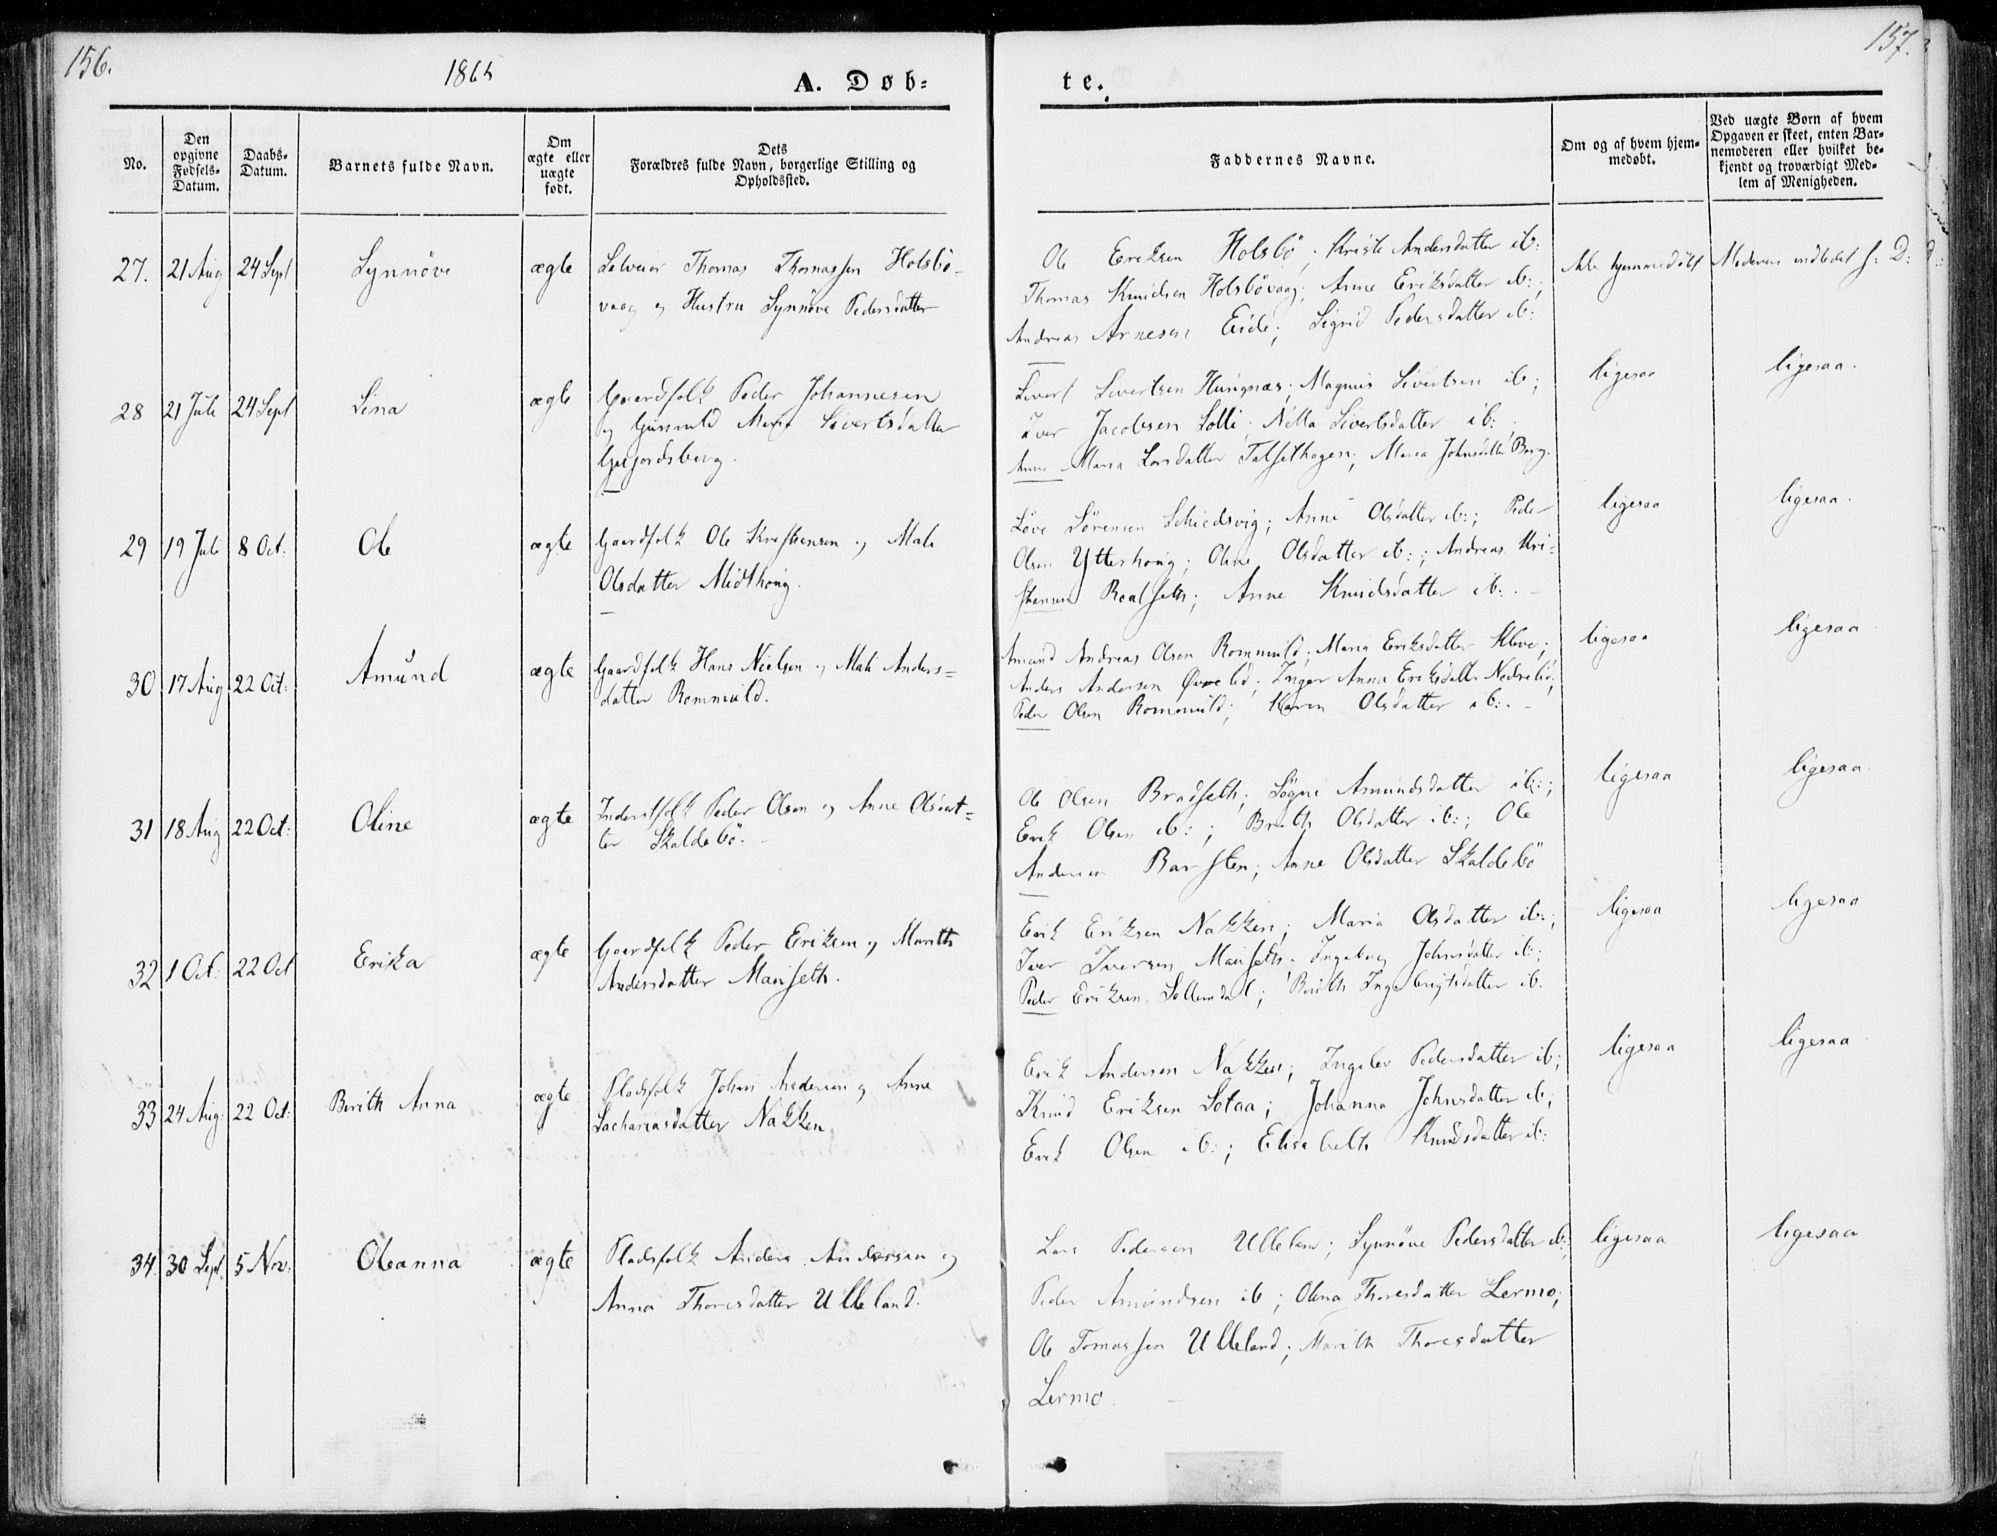 156.
157.
A. Døb=
te.
No.
Den opgivne Fødsels-Datum.
Daabs-Datum.
Barnets fulde Navn.
Om ægte eller uægte født.
Dets Forældres fulde Navn, borgerlige Stilling og Opholdssted.
Faddernes Navne.
Om og af hvem hjem-medøbt.
Ved uægte Børn af hvem Opgaven er skeet, enten Bar-nemoderen eller hvilket be-kjendt og troværdigt Med-lem af Menigheden.
27. 21 Aug 24 Sept Synnöve ægte
Selveier Thomas Thomassen Holsbö-
vaag og Hustru Synnöve Pedersdatter
Ole Eriksen Holsbö; Andersdatter ib:
Thomas Knudsen Holsbövaag; Anne Eriksdatter ib:;
Andreas Arnesen Eide; Sigrid Pedersdatter ib:
Ikke hjemmedøbt
28 21 Juli 24 Sept Sina ægte
Gaardfolk Peder Johannesen
og Gunnild Maria Sivertsdatter
Gujordsberg.
Sivert Sivertsen Hungnæs; Magnus Sivertsen ib:;
Iver Jacobsen Solli; Sivertsdatter ib:;
Anne Maria Larsdatter; Maria Johnsdatter Berg.
ligesaa
ligesaa.
29 19 Juli 8 Oct: Ole ægte
Gaardfolk Ole Kristensen og Mali
Olsdatter Midthoug.
Sörensen; Anne Olsdatter ib:; Peder
Olsen Ytterhoug; Oline Olsdatter ib:; Andreas Kri-
stensen; Anne Knudsdatter ib:.
ligesaa
ligesaa.
30 17 Aug 22 Oct: Amund ægte
Gaardfolk Hans Nielsen og Mali Anders=
datter Rommuld.
Amund Andreas Olsen Rommuld; Maria Eriksdatter;
Anders Andersen Øvrelid; Inger Anna Eriksdatter Nedrelid;
Peder Olsen Rommuld; Karen Olsdatter ib:.
ligesaa
ligesaa
31 18 Aug 22 Oct: Oline ægte
Inderstfolk Peder Olsen og Anne Olsdat=
ter Skaldebö.
Ole Olsen Bradseth; Sögni Amundsdatter ib:;
Erik Olsen ib:; Brith Olsdatter ib:; Ole
Andersen Barsten; Anne Olsdatter Skaldebö
ligesaa
ligesaa
32 1 Oct: 22 Oct Erika ægte
Gaardfolk Peder Eriksen og Marith
Andersdatter Mauseth.
Erik Eriksen Nakken; Maria Olsdatter ib:;
Iver Iversen Mauseth; Ingeborg Johnsdatter ib:;
Peder Eriksen Sollemdal; Brith Ingebrigtsdatter ib.
ligesaa
ligesaa
33 24 Aug: 22 Oct: Berith Anna ægte
Pladsfolk Johan Andersen og Anne
Sachariasdatter Nakken
Erik Andersen Nakken; Ingelev Pedersdatter ib;
Knud Eriksen Sotaa; Johanna Johnsdatter ib;
Erik Olsen ib:; Elisabeth Knudsdatter ib:
ligesaa
ligesaa
34 30 Sept. 5 Nov: Oleanna ægte
Pladsfolk Anders Andersen og
Anna Thoresdatter Ulleland.
Lars Pedersen Ulleland; Synnöve Pedersdatter ib:;
Peder Amundsen ib; Olena Thoresdatter Lermo;
Ole Tomassen Ulleland; Marith Thoresdatter
Lermo.
ligesaa
ligesaa